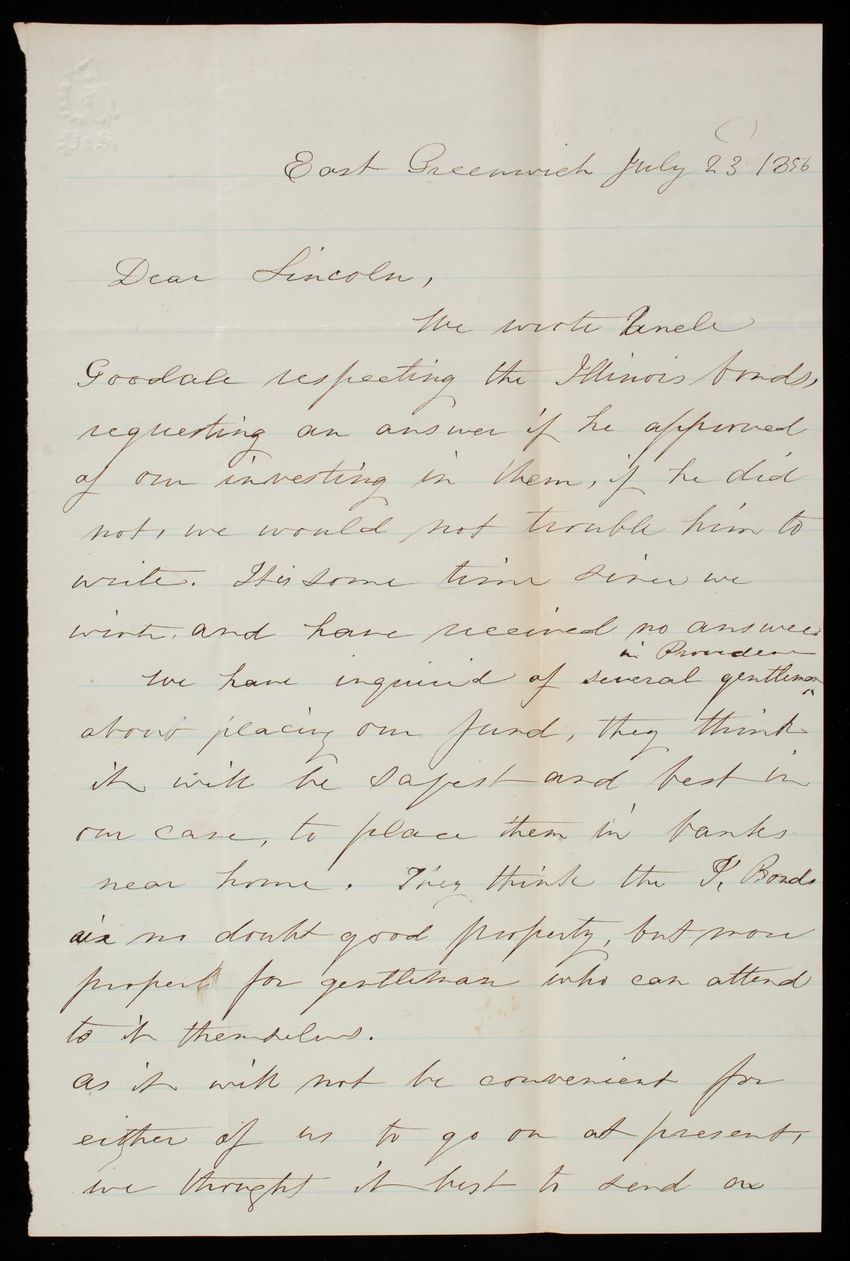 East Greenwich July 23 1856
Dear Lincoln,
We wrote Uncle
Goodale respecting the Illinois bonds,
requesting an answer if he approved
of our investing in them, if he did
not, we would not trouble him to
write. It is some time since we
wrote, and have received no answer
in Providence
We have inquired of several gentlemen
about placing our fund, they think
it will be safest and best in
our case, to place them in banks
near home. They think the I, Bonds
are no doubt good property, but more
proper for gentleman who can attend
to it themselves.
as it will not be convenient for
either of us to go on at present,
we thought it best to send on